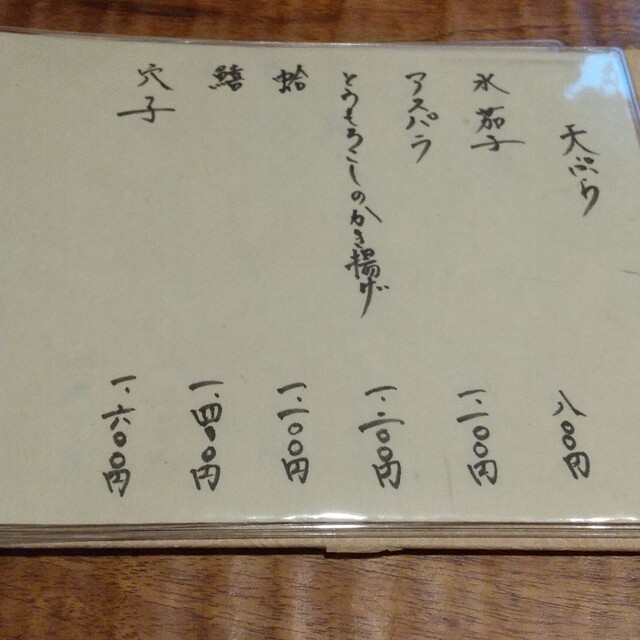 天ぷら
水茄子 八〇〇円
アスパラ 一、一〇〇円
とうもろこしのかき揚げ 一、二〇〇円
蛤 一、一〇〇円
鱚 一、四〇〇円
穴子 一、六〇〇円